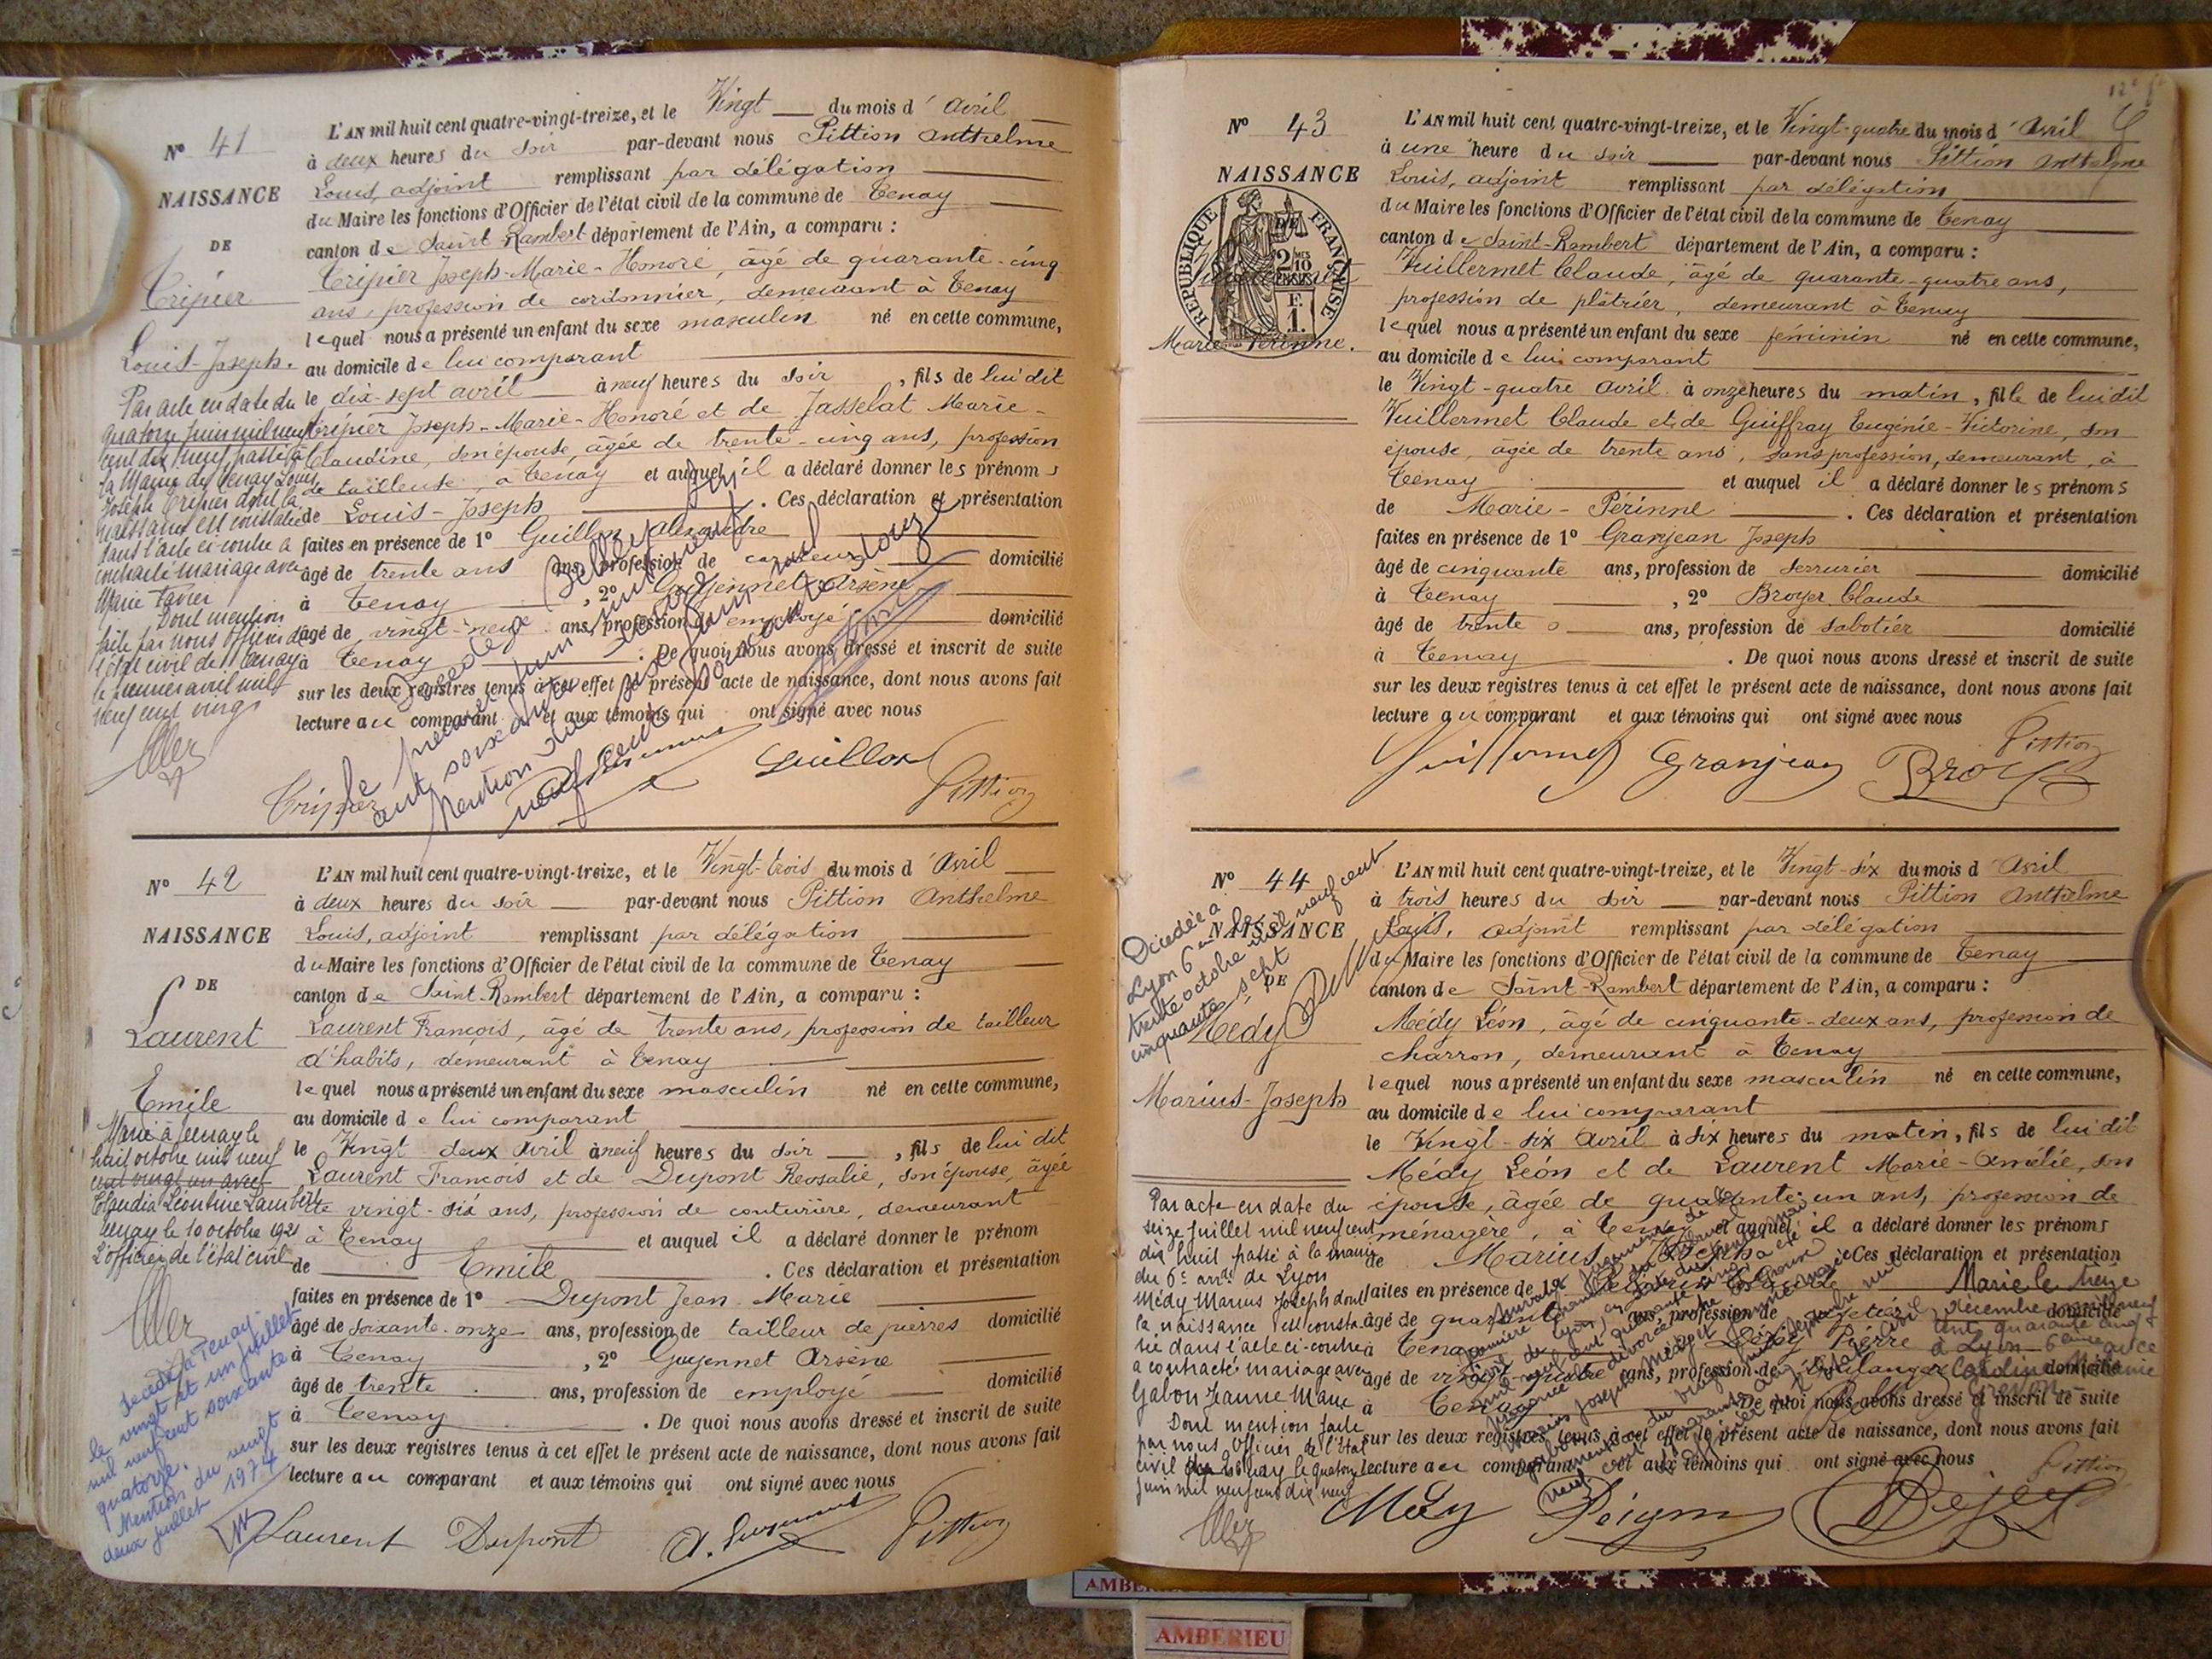 N° 41
NAISSANCE
DE
Tripier
Louis-Joseph.
L'AN mil huit cent quatre-vingt-treize, et le Vingt du mois d'Avril
à deux heures du soir par-devant nous Pittion Anthelme
Louis, adjoint remplissant par délégation
du Maire les fonctions d'Officier de l'état civil de la commune de Tenay
canton de Saint-Rambert département de l'Ain, a comparu :
Tripier Joseph-Marie-Honoré, âgé de quarante-cinq
ans, profession de cordonnier, demeurant à Tenay
lequel nous a présenté un enfant du sexe masculin né en cette commune,
au domicile de lui comparant
le dix-sept avril à neuf heures du soir, fils de lui dit
Tripier Joseph-Marie-Honoré et de Jasselat Marie-
Claudine, son épouse, âgée de trente-cinq ans, profession
de tailleuse, à Tenay et auquel il a déclaré donner les prénoms
de Louis-Joseph. Ces déclaration et présentation
faites en présence de 1° Guillon Alexandre
âgé de trente ans ans, profession de domicilié
à Tenay, 2° Guyennet Arsène
âgé de vingt-neuf ans, profession employé domicilié
à Tenay. De quoi nous avons dressé et inscrit de suite
sur les deux registres tenus à cet effet le présent acte de naissance, dont nous avons fait
lecture au comparant et aux témoins qui ont signé avec nous
Par acte en date du
quatorze juin mil neuf
cent dix neuf passé à
la Mairie de Tenay Louis
Joseph Tripier dont la
naissance est constatée
dans l'acte ci-contre a
contracté mariage avec
Marie Favier
Dont mention
faite par nous Officier de
l'état civil de Tenay
le premier avril mil
neuf cent vingt
Décédé à
le premier juin mil neuf
cent soixante
Mention
Tripier Guillon Pittion
N° 42
NAISSANCE
DE
Laurent
Emile
L'AN mil huit cent quatre-vingt-treize, et le Vingt-trois du mois d'Avril
à deux heures du soir par-devant nous Pittion Anthelme
Louis, adjoint remplissant par délégation
du Maire les fonctions d'Officier de l'état civil de la commune de Tenay
canton de Saint-Rambert département de l'Ain, a comparu :
Laurent François, âgé de trente ans, profession de tailleur
d'habits, demeurant à Tenay
lequel nous a présenté un enfant du sexe masculin né en cette commune,
au domicile de lui comparant
le Vingt deux Avril à neuf heures du soir, fils de lui dit
Laurent François et de Dupont Rosalie, son épouse, âgée
de vingt-six ans, profession de couturière, demeurant
à Tenay et auquel il a déclaré donner le prénom
de Emile. Ces déclaration et présentation
faites en présence de 1° Dupont Jean Marie
âgé de soixante-onze ans, profession de tailleur de pierres domicilié
à Tenay, 2° Guyennet Arsène
âgé de trente ans, profession de employé domicilié
à Tenay. De quoi nous avons dressé et inscrit de suite
sur les deux registres tenus à cet effet le présent acte de naissance, dont nous avons fait
lecture au comparant et aux témoins qui ont signé avec nous
Marié à Tenay le
huit octobre mil neuf
cent vingt un avec
Claudia Léontine Lambert
Tenay le 10 octobre 1921
L'officier de l'état civil
Décédé à Tenay
le vingt et un juillet
mil neuf cent soixante
quatorze.
Mention du vingt
deux juillet 1974
Laurent Dupont Pittion
N° 43
NAISSANCE
DE
Marie-Périnne.
REPUBLIQUE FRANÇAISE
2/10
F.
1.
L'AN mil huit cent quatre-vingt-treize, et le Vingt-quatre du mois d'Avril
à une heure du soir par-devant nous Pittion Anthelme
Louis, adjoint remplissant par délégation
du Maire les fonctions d'Officier de l'état civil de la commune de Tenay
canton de Saint-Rambert département de l'Ain, a comparu :
Vuillermet Claude, âgé de quarante-quatre ans,
profession de plâtrier, demeurant à Tenay
lequel nous a présenté un enfant du sexe féminin né en cette commune,
au domicile de lui comparant
le Vingt-quatre Avril à onze heures du matin, fille de lui dit
Vuillermet Claude et de Guiffray Eugénie-Victorine, son
épouse, âgée de trente ans, sans profession, demeurant à
Tenay et auquel il a déclaré donner les prénoms
de Marie-Périnne. Ces déclaration et présentation
faites en présence de 1° Granjean Joseph
âgé de cinquante ans, profession de serrurier domicilié
à Tenay, 2° Broyer Claude
âgé de trente ans, profession de sabotier domicilié
à Tenay. De quoi nous avons dressé et inscrit de suite
sur les deux registres tenus à cet effet le présent acte de naissance, dont nous avons fait
lecture au comparant et aux témoins qui ont signé avec nous
Vuillermet Granjean Broyer Pittion
N° 44
NAISSANCE
DE
Médy
Marius-Joseph
Décédé à
Lyon 6 le
trente octobre mil neuf cent
cinquante sept
L'AN mil huit cent quatre-vingt-treize, et le Vingt-six du mois d'Avril
à trois heures du soir par-devant nous Pittion Anthelme
Louis, adjoint remplissant par délégation
du Maire les fonctions d'Officier de l'état civil de la commune de Tenay
canton de Saint-Rambert département de l'Ain, a comparu :
Médy Léon, âgé de cinquante-deux ans, profession de
charron, demeurant à Tenay
lequel nous a présenté un enfant du sexe masculin né en cette commune,
au domicile de lui comparant
le Vingt-six Avril à six heures du matin, fils de lui dit
Médy Léon et de Laurent Marie-Amélie, son
épouse, âgée de quarante-un ans, profession de
ménagère, à Tenay et auquel il a déclaré donner les prénoms
de Marius-Joseph. Ces déclaration et présentation
faites en présence de 1°
âgé de quarante ans, profession de domicilié
à Tenay, 2° Pierre
âgé de vingt-quatre ans, profession de boulanger domicilié
à Tenay. De quoi nous avons dressé et inscrit de suite
sur les deux registres tenus à cet effet le présent acte de naissance, dont nous avons fait
lecture au comparant et aux témoins qui ont signé avec nous
Par acte en date du
seize juillet mil neuf cent
dix huit passé à la mairie
du 6e arrdt de Lyon
Médy Marius Joseph dont
la naissance est consta-
tée dans l'acte ci-contre
a contracté mariage avec
Gabon Jeanne Marie
Dont mention faite
par nous Officier de l'état
civil de Tenay le quatorze
juin mil neuf cent dix neuf
Marié le seize
décembre mil neuf
cent quarante
à Lyon 6eme avec
Caroline
Médy Pittion
AMBERIEU
AMBERIEU